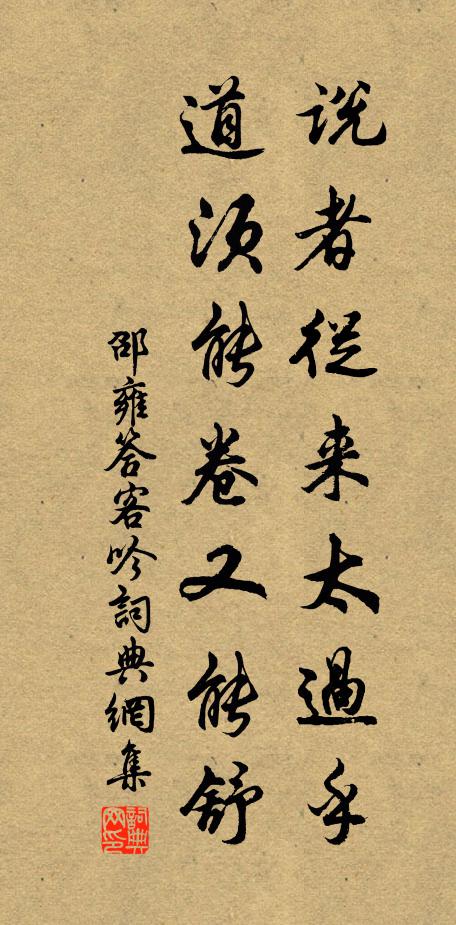 说者從来太過乎
道须能卷又能舒
邵雍答客吟詞典網集
詞典网印